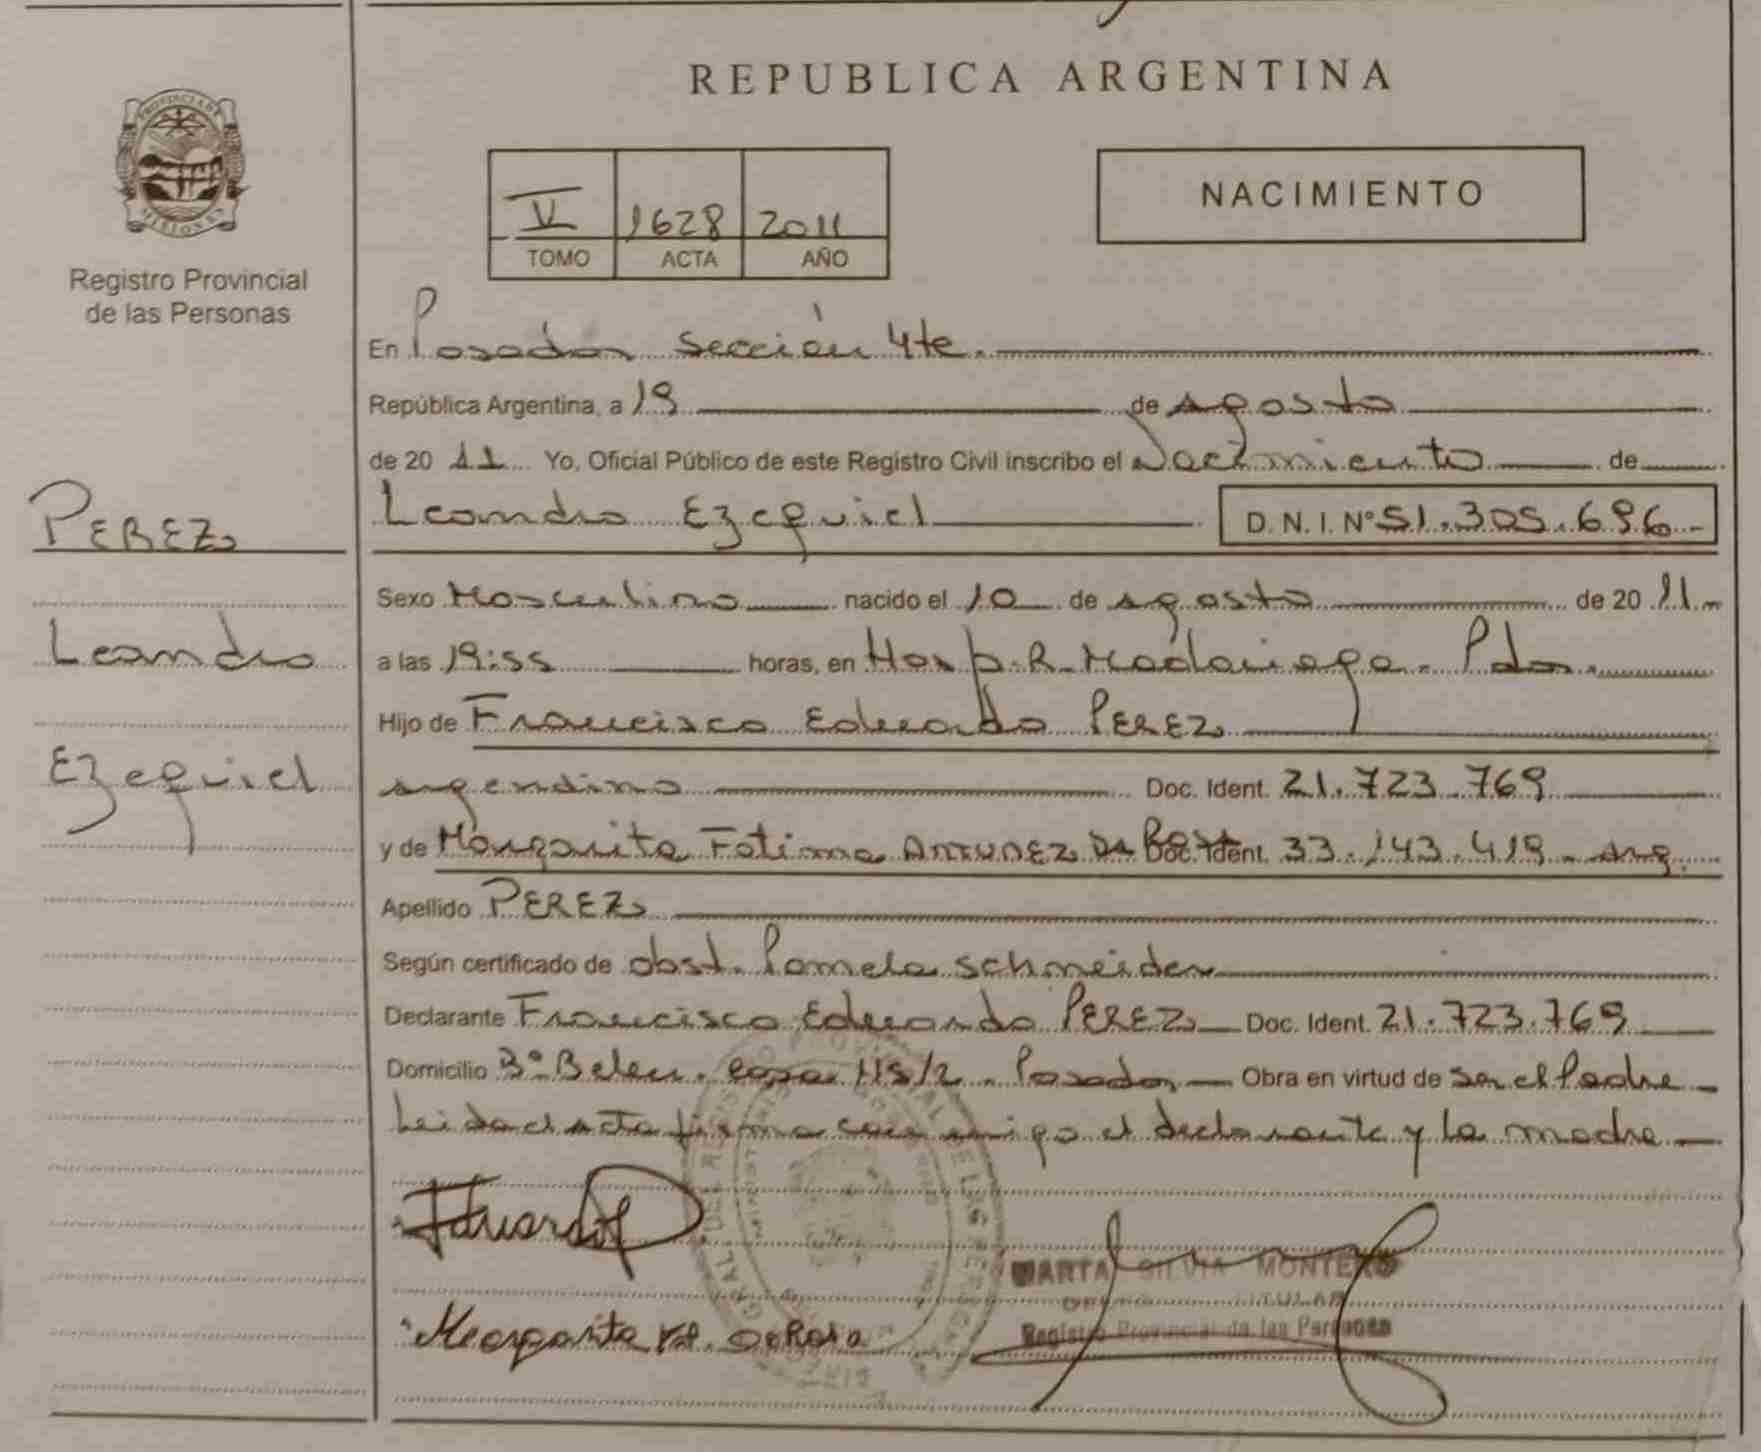 PROVINCIA DE
MISIONES
Registro Provincial
de las Personas
PEREZ
Leandro
Ezequiel
REPUBLICA ARGENTINA
V 1628 2011
TOMO ACTA AÑO
NACIMIENTO
En Posadas Sección 4te.
República Argentina, a 19 de Agosto
de 20 11 Yo, Oficial Público de este Registro Civil inscribo el Nacimiento de
Leandro Ezequiel D. N. I. Nº 51.305.696
Sexo Masculino nacido el 10 de Agosto de 20 11
a las 19:55 horas, en Hosp. R. Madariaga. Pdas.
Hijo de Francisco Eduardo PEREZ
Argentino Doc. Ident. 21.723.769
y de Margarita Fatima ANTUNEZ Da Doc. Ident. 33.143.419 - Arg.
Apellido PEREZ
Según certificado de obst. Pamela Schneider
Declarante Francisco Eduardo PEREZ Doc. Ident. 21.723.769
Domicilio Bº Belen. casa 115/2. Posadas Obra en virtud de Ser el Padre
Leida el Acta firma conmigo el declarante y la madre
Eduardo
Margarita
MARTA SILVIA MONTERO
Registro Provincial de las Personas